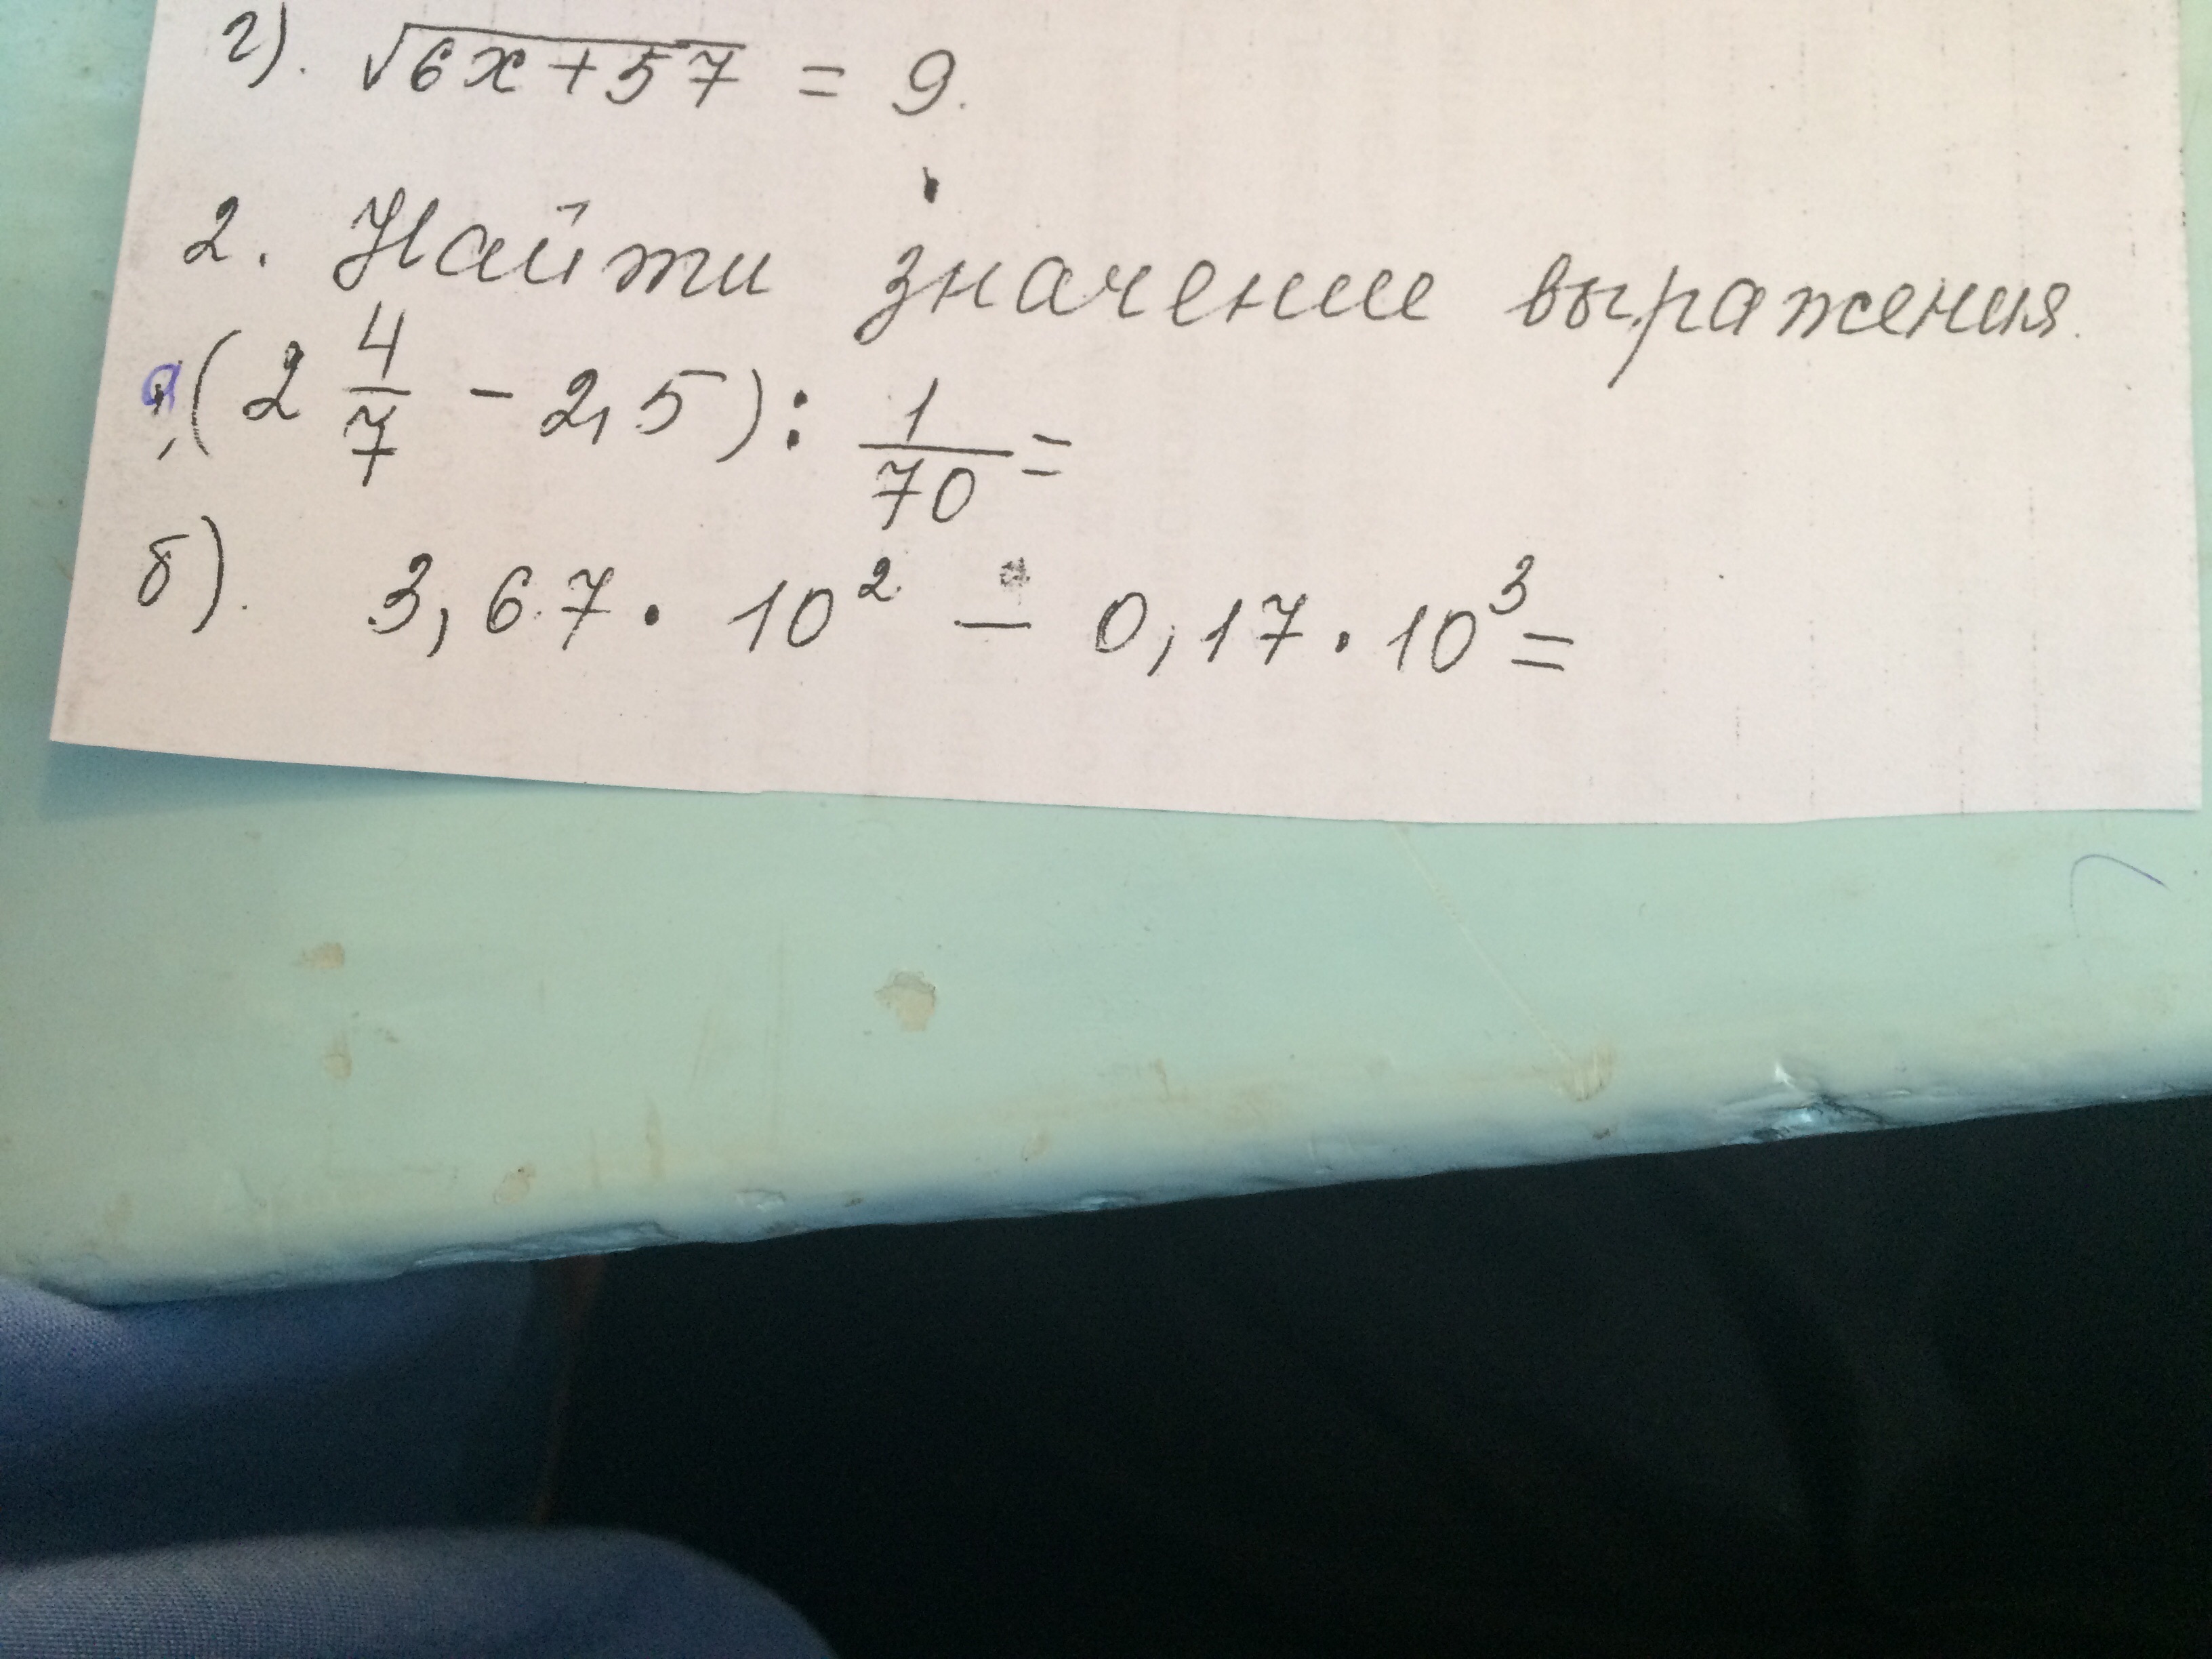 г). √6x+57 = 9.
2. Найти значение выражения.
а, (2 4/7 - 2,5) : 1/70 =
б). 3,67 · 10² - 0,17 · 10³ =